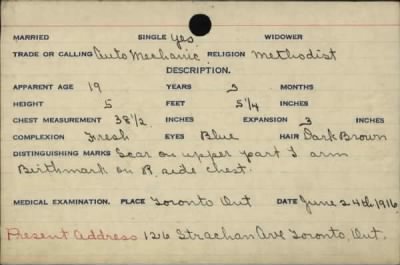 MARRIED SINGLE yes WIDOWER
TRADE OR CALLING Auto Mechanic RELIGION Methodist
DESCRIPTION.
APPARENT AGE 19 YEARS 3 MONTHS
HEIGHT 5 FEET 5 1/4 INCHES
CHEST MEASUREMENT 38 1/2 INCHES EXPANSION 3 INCHES
COMPLEXION Fresh EYES Blue HAIR Dark Brown
DISTINGUISHING MARKS Scar on upper part L arm
Birthmark on R. side chest.
MEDICAL EXAMINATION. PLACE Toronto Ont DATE June 24th 1916
Present Address 126 Strachan Ave Toronto, Ont.